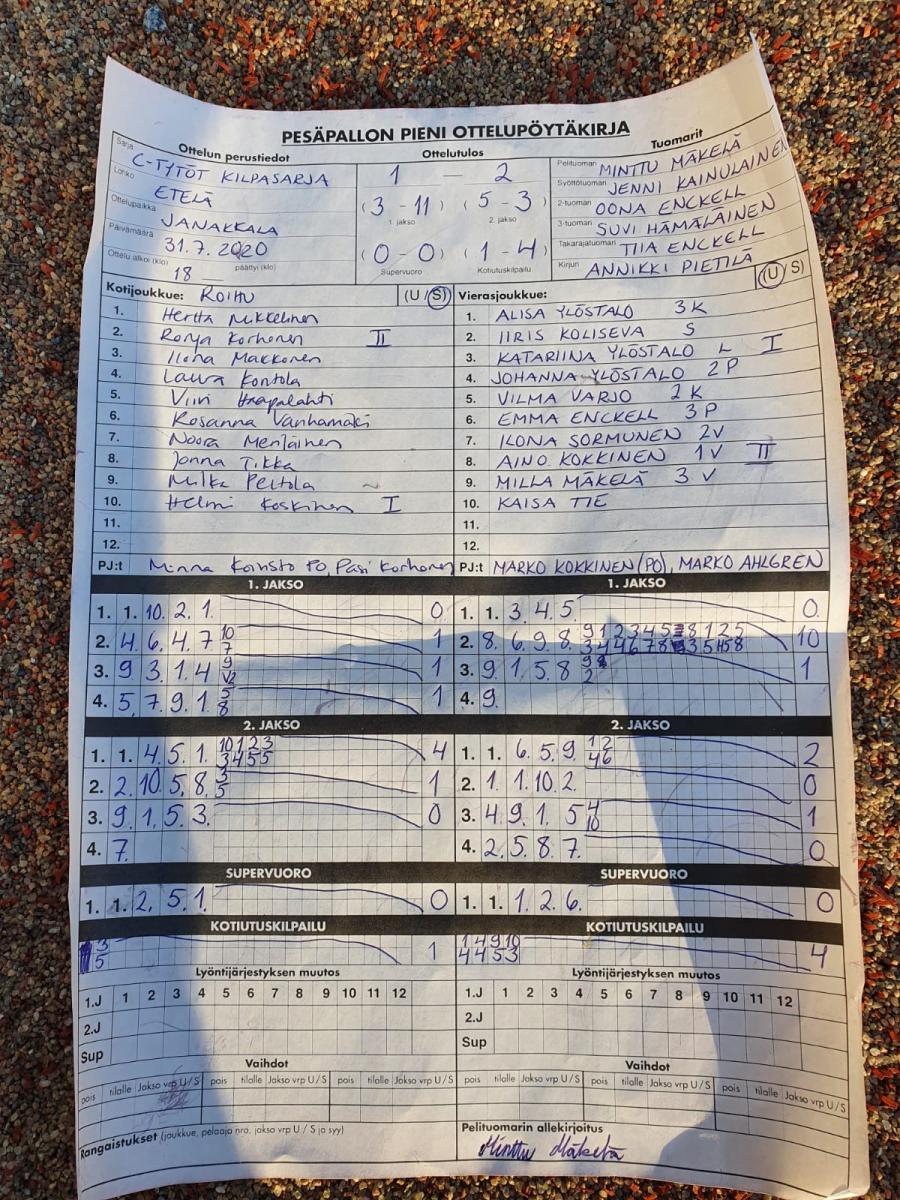 PESÄPALLON PIENI OTTELUPÖYTÄKIRJA
Ottelun perustiedot
Sarja C-TYTÖT KILPASARJA
Lohko ETELÄ
Ottelupaikka JANAKKALA
Päivämäärä 31.7.2020
Ottelu alkoi (klo) 18 päättyi (klo)
Ottelutulos
1 — 2
(3 - 11) (5 - 3)
1. jakso 2. jakso
(0 - 0) (1 - 4)
Supervuoro Kotiutuskilpailu
Tuomarit
Pelituomari MINTTU MÄKELÄ
Syöttötuomari JENNI KAINULAINEN
2-tuomari OONA ENCKELL
3-tuomari SUVI HÄMÄLÄINEN
Takarajatuomari TIIA ENCKELL
Kirjuri ANNIKKI PIETILÄ
Kotijoukkue: ROIHU (U / S)
1. Hertta Mikkelinen
2. Ronja Korhonen II
3. Ilona Makkonen
4. Laura Kontola
5. Viivi Haapalahti
6. Rosanna Vanhamäki
7. Noora Meriläinen
8. Jonna Tikka
9. Milka Peltola
10. Helmi Koskinen I
11.
12.
PJ:t Minna Koivisto PO, Pasi Korhonen
Vierasjoukkue: (U / S)
1. ALISA YLÖSTALO 3K
2. IIRIS KOLISEVA S
3. KATARIINA YLÖSTALO L I
4. JOHANNA YLÖSTALO 2P
5. VILMA VARJO 2K
6. EMMA ENCKELL 3P
7. ILONA SORMUNEN 2V
8. AINO KOKKINEN 1V II
9. MILLA MÄKELÄ 3V
10. KAISA TIE
11.
12.
PJ:t MARKO KOKKINEN (PO), MARKO AHLGREN
1. JAKSO
1. 1. 10. 2. 1. 0
2. 4. 6. 4. 7 10 7 1
3. 9 3. 1. 4 1
4. 5, 7. 9. 1. 5 8 1
1. JAKSO
1. 1. 3. 4. 5. 0
2. 8. 6. 9. 8. 10
3. 9. 1. 5. 8 1
4. 9.
2. JAKSO
1. 1. 4. 5. 1. 10 1 2 3 4
3 4 5 5
2. 2. 10. 5. 8. 3 5 1
3. 9. 1. 5. 3. 0
4. 7.
2. JAKSO
1. 1. 6. 5. 9. 1 2 2
4 6
2. 1. 1. 10. 2. 0
3. 4. 9. 1. 5 4 10 1
4. 2. 5. 8. 7. 0
SUPERVUORO
1. 1. 2. 5. 1. 0
SUPERVUORO
1. 1. 1. 2. 6. 0
KOTIUTUSKILPAILU
3 1
5
KOTIUTUSKILPAILU
1 4 9 10 4
4 4 5 3
Lyöntijärjestyksen muutos
1.J 1 2 3 4 5 6 7 8 9 10 11 12
2.J
Sup
Lyöntijärjestyksen muutos
1.J 1 2 3 4 5 6 7 8 9 10 11 12
2.J
Sup
Vaihdot
pois tilalle Jakso vrp U / S pois tilalle Jakso vrp U / S pois tilalle Jakso vrp U / S
Vaihdot
pois tilalle Jakso vrp U / S pois tilalle Jakso vrp U / S pois tilalle Jakso vrp U / S
Rangaistukset (joukkue, pelaaja nro, jakso vrp U / S ja syy)
Pelituomarin allekirjoitus
Minttu Mäkelä